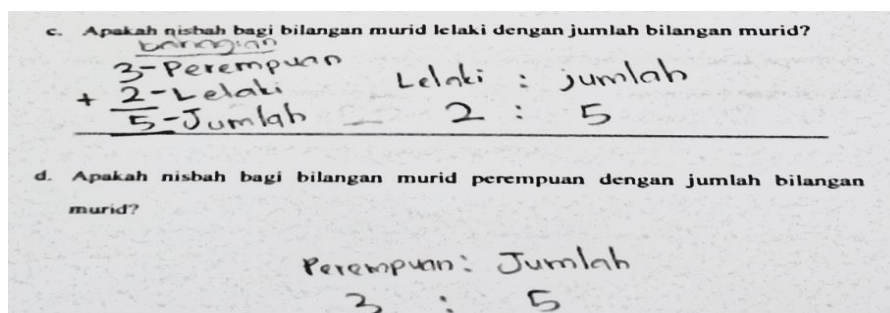 c. Apakah nisbah bagi bilangan murid lelaki dengan jumlah bilangan murid?
bahagian
3-Perempuan
+ 2-Lelaki
5-Jumlah
Lelaki : jumlah
2 : 5
d. Apakah nisbah bagi bilangan murid perempuan dengan jumlah bilangan
murid?
Perempuan: Jumlah
3 : 5